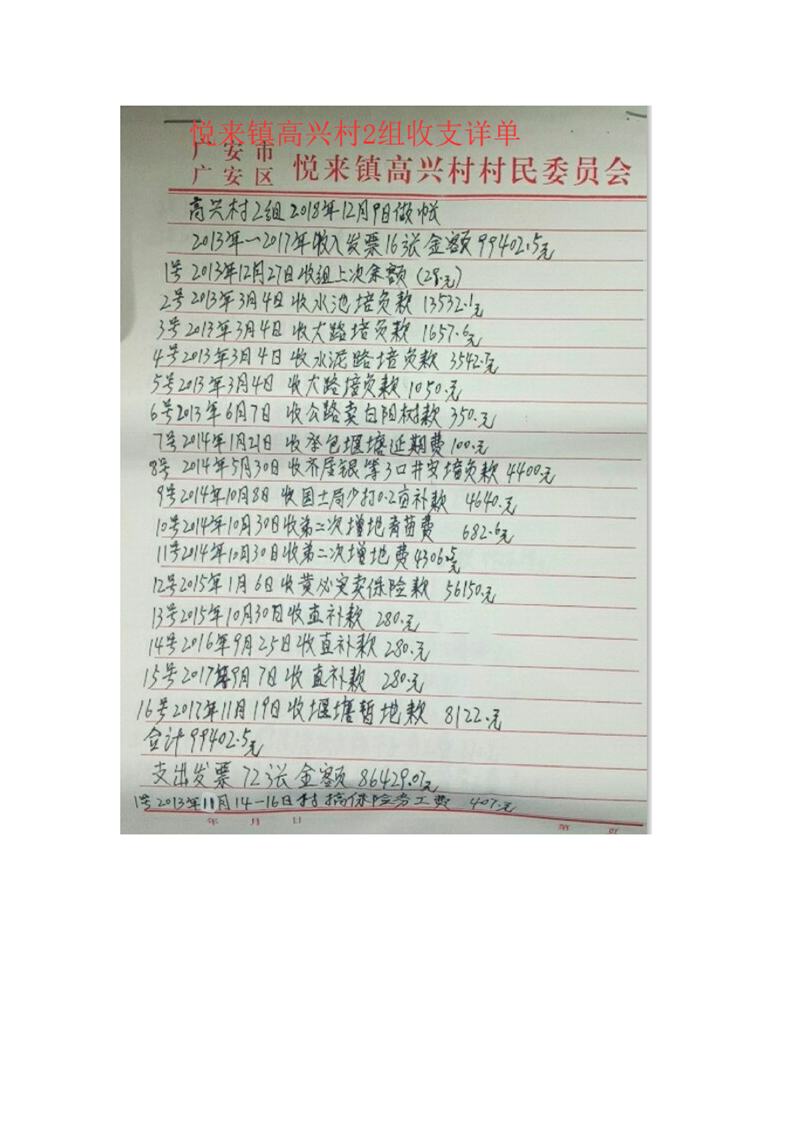 悦来镇高兴村2组收支详单
广安市
广安区 悦来镇高兴村村民委员会
高兴村2组2018年12月9日做帐
2013年—2017年收入发票16张金额99402.5元
1号2013年12月27日收组上次余额(28.元)
2号2013年3月4日收水池培负款13532.1元
3号2013年3月4日收大路培负款1657.6元
4号2013年3月4日收水泥路培负款3542.7元
5号2013年3月4日收大路培负款1050.元
6号2013年6月7日收公路卖白阳树款350.元
7号2014年1月21日收承包堰塘延期费100.元
8号2014年5月30日收 银等3口井安培负款4400元
9号2014年10月8日收国土局少打0.2亩补款4640.元
10号2014年10月30日收第二次增地青苗费682.6元
11号2014年10月30日收第二次增地费4306.5元
12号2015年1月6日收黄必安卖保险款56150.元
13号2015年10月30日收直补款280.元
14号2016年9月25日收直补款280.元
15号2017年9月7日收直补款280.元
16号2017年11月19日收堰塘暂地款8122.元
合计99402.5元
支出发票72张金额86429.07元
1号2013年11月14-16日村搞保险务工费407.元
年 月 日 第 页